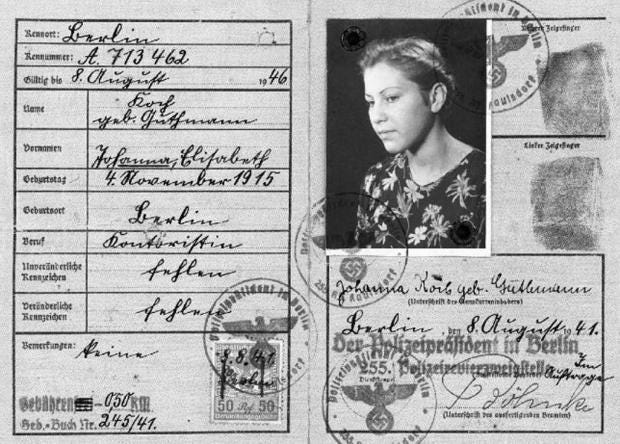 Kennort: Berlin
Kennummer: A. 713 462
Gültig bis 8. August 1946
Name
Koch
geb. Guthmann
Vornamen
Johanna, Elisabeth
Geburtstag 4. November 1915
Geburtsort Berlin
Beruf Kontoristin
Unveränderliche
Kennzeichen fehlen
Veränderliche
Kennzeichen fehlen
Bemerkungen: keine
Gebühren 0,50 RM.
Geb.-Buch Nr. 245/41.
8.8.41
Berlin
50 Rpf 50
Polizeipräsident in Berlin
Rechter Zeigefinger
Linker Zeigefinger
Johanna Koch geb. Guthmann
(Unterschrift des Kennkarteninhabers)
Berlin, den 8. August 1941.
Der Polizeipräsident in Berlin
255. Polizeirevierzweigstelle
Dienststelle
Im
Auftrage
Böhnke
(Unterschrift des ausfertigenden Beamten)
Polizeipräsident in Berlin